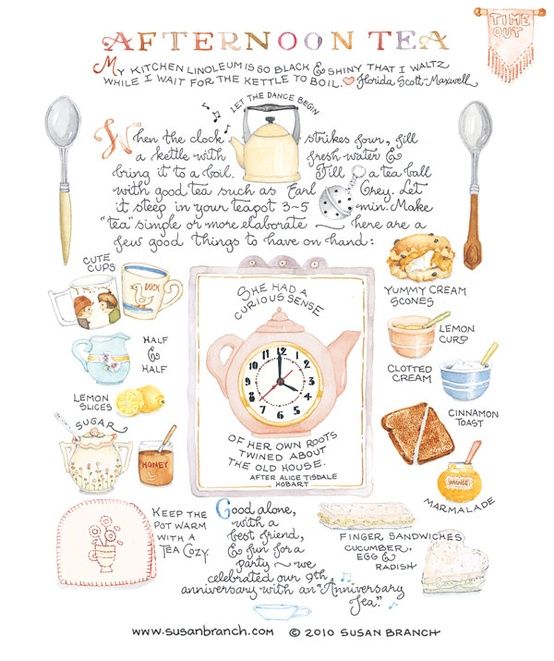 TIME
OUT
AFTERNOON TEA
MY KITCHEN LINOLEUM IS SO BLACK & SHINY THAT I WALTZ
WHILE I WAIT FOR THE KETTLE TO BOIL. Florida Scott-Maxwell
LET THE DANCE BEGIN
When the clock strikes four, fill
a kettle with fresh water &
bring it to a boil. Fill a tea ball
with good tea such as Earl Grey. Let
it steep in your teapot 3~5 min. Make
"tea" simple or more elaborate ~ here are a
few good things to have on hand:
CUTE
CUPS
DUCK
HALF
&
HALF
LEMON
SLICES
SUGAR
HONEY
SHE HAD A
CURIOUS SENSE
12
1
2
3
4
5
6
7
8
9
10
11
OF HER OWN ROOTS
TWINED ABOUT
THE OLD HOUSE.
AFTER ALICE TISDALE
HOBART
YUMMY CREAM
SCONES
LEMON
CURD
CLOTTED
CREAM
CINNAMON
TOAST
MARMALADE
KEEP THE
POT WARM
WITH A
TEA COZY
Good alone,
with a
best friend,
& fun for a
party ~ we
celebrated our 9th
anniversary with an "Anniversary
Tea."
FINGER SANDWICHES
CUCUMBER,
EGG &
RADISH
www.susanbranch.com © 2010 SUSAN BRANCH